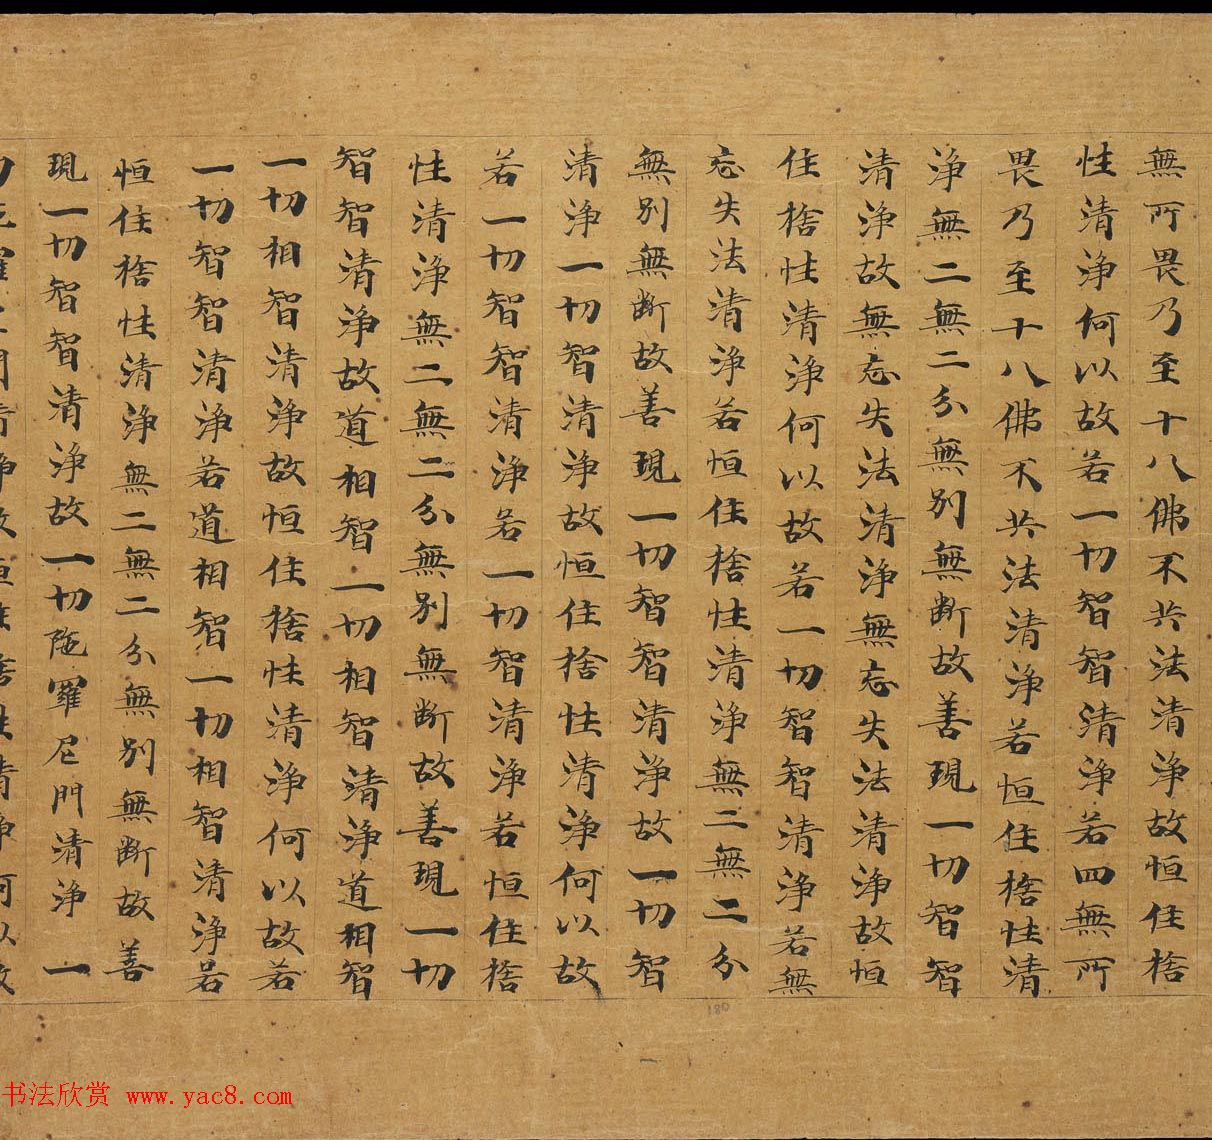 無所畏乃至十八佛不共法清淨故恒住捨
性清淨何以故若一切智智清淨若四無所
畏乃至十八佛不共法清淨若恒住捨性清
淨無二無二分無別無斷故善現一切智智
清淨故無忘失法清淨無忘失法清淨故恒
住捨性清淨何以故若一切智智清淨若無
忘失法清淨若恒住捨性清淨無二無二分
無別無斷故善現一切智智清淨故一切智
清淨一切智清淨故恒住捨性清淨何以故
若一切智智清淨若一切智清淨若恒住捨
性清淨無二無二分無別無斷故善現一切
智智清淨故道相智一切相智清淨道相智
一切相智清淨故恒住捨性清淨何以故若
一切智智清淨若道相智一切相智清淨若
恒住捨性清淨無二無二分無別無斷故善
現一切智智清淨故一切陁羅尼門清淨一
切羅門清淨故恒住捨性清淨何以故
180
书法欣赏 www.yac8.com